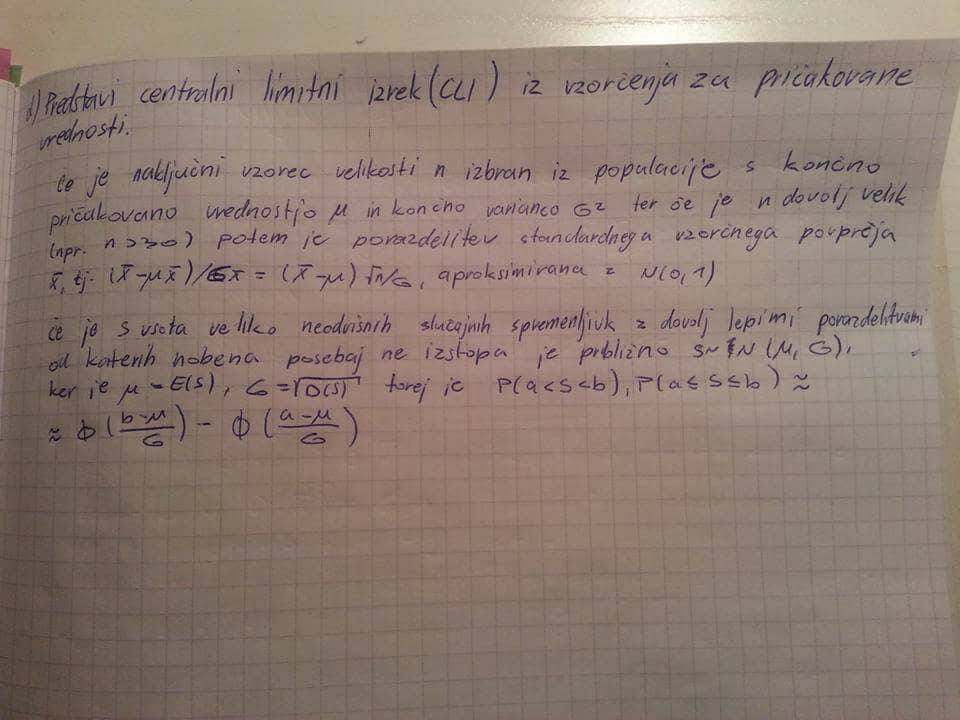 d) Predstavi centralni limitni izrek (CLI) iz vzorčenja za pričakovane
vrednosti.
če je naključni vzorec velikosti n izbran iz populacije s končno
pričakovano vrednostjo μ in končno varianco σ2 ter če je n dovolj velik
(npr. n>30) potem je porazdelitev standardnega vzorčnega povprečja
x̄, tj. (x̄-μx̄)/σx̄ = (x̄-μ)√n/σ, aproksimirana z N(0,1)
če je s vsota veliko neodvisnih slučajnih spremenljivk z dovolj lepimi porazdelitvami
od katerih nobena posebaj ne izstopa je približno S~N(μ,σ),
ker je μ=E(S), σ=√D(S) torej je P(a<S<b), P(a≤S≤b) ≈
≈ ϕ((b-μ)/σ) - ϕ((a-μ)/σ)